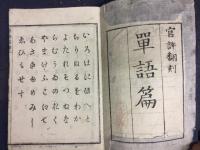 官許翻刻
單語篇
いろはにほへと
ちりぬるをわか
よたれそつねな
らむうゐのおく
やまけふこえて
あさきゆめみし
ゑひもせす